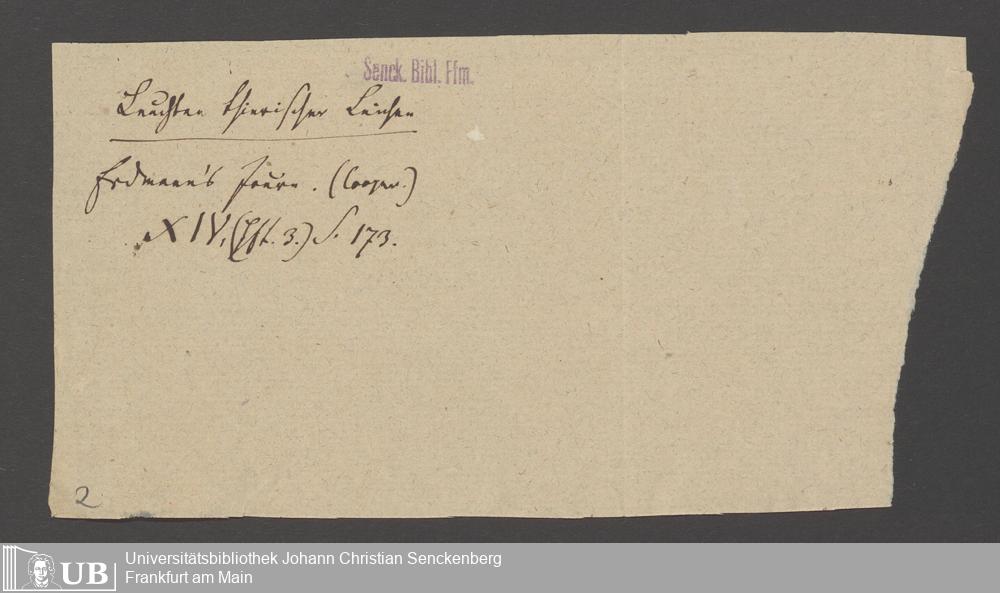 Senck. Bibl. Ffm.
Leuchten thierischer Leichen
Erdmann's Journ. (Cooper.)
XIV, (Hft. 3.) S. 173.
2
UB
Universitätsbibliothek Johann Christian Senckenberg
Frankfurt am Main